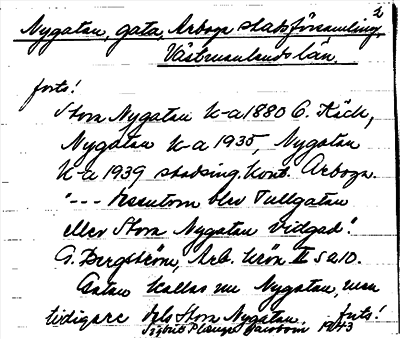 2
Nygatan, gata, Arboga stadsförsamling,
Västmanlands län.
forts!
Stora Nygatan K-a 1880 C. Käck,
Nygatan K-a 1935, Nygatan
K-a 1939 stadsing. kont. Arboga.
"--- Dessutom blev Tullgatan
eller Stora Nygatan vidgad".
G. Bergström, Arb. krön II s a10.
Gatan kallas nu Nygatan, men
tidigare dels Stora Nygatan. forts!
Sigbrit Plaenge Jacobson 1943